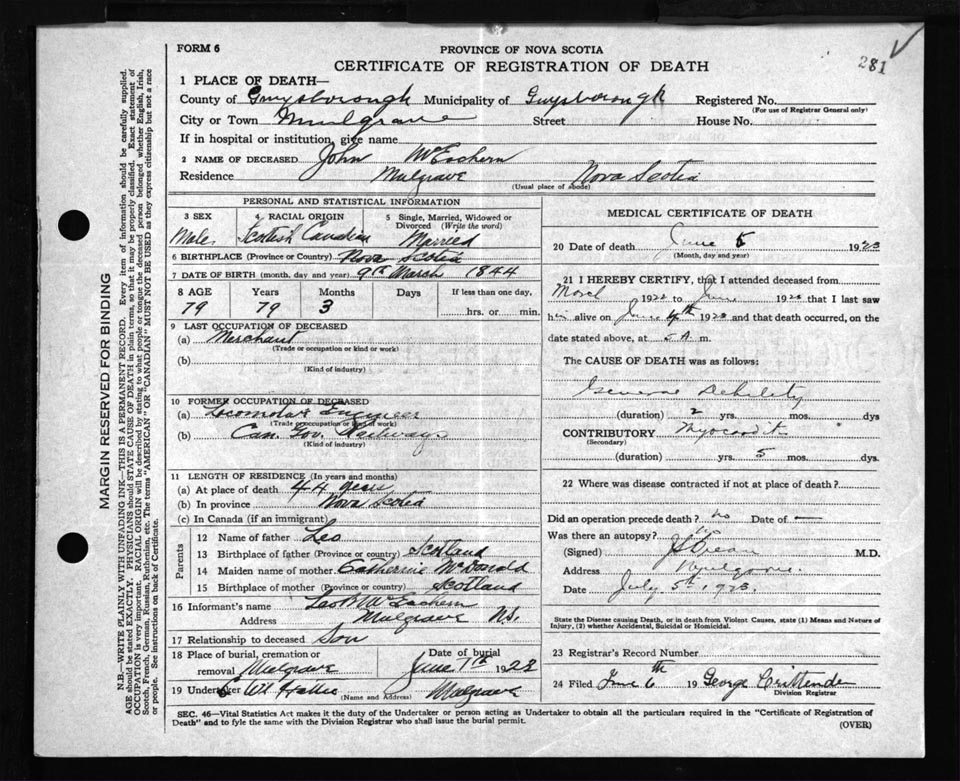 281
FORM 6
PROVINCE OF NOVA SCOTIA
CERTIFICATE OF REGISTRATION OF DEATH
1 PLACE OF DEATH—
County of Guysborough Municipality of Guysborough Registered No.
(For use of Registrar General only)
City or Town Mulgrave Street House No.
If in hospital or institution, give name
2 NAME OF DECEASED John McEachern
Residence Mulgrave Nova Scotia
(Usual place of abode)
PERSONAL AND STATISTICAL INFORMATION
3 SEX
Male
4 RACIAL ORIGIN
Scotish Canadian
5 Single, Married, Widowed or Divorced (Write the word)
Married
6 BIRTHPLACE (Province or Country) Nova Scotia
7 DATE OF BIRTH (month, day and year) 9th March 1844
8 AGE Years Months Days If less than one day,
79 79 3 hrs. or min.
9 LAST OCCUPATION OF DECEASED
(a) Merchant
(Trade or occupation or kind or work)
(b)
(Kind of industry)
10 FORMER OCCUPATION OF DECEASED
(a) Locomotive Engineer
(Trade or occupation or kind of work)
(b) Can. Gov. Railways
(Kind of industry)
11 LENGTH OF RESIDENCE (In years and months)
(a) At place of death 44 years
(b) In province Nova Scotia
(c) In Canada (if an immigrant)
Parents
12 Name of father Leo
13 Birthplace of father (Province or country) Scotland
14 Maiden name of mother Catherine McDonald
15 Birthplace of mother (Province or country) Scotland
16 Informant's name Leo B McEachern
Address Mulgrave N.S.
17 Relationship to deceased Son
18 Place of burial, cremation or removal Mulgrave
Date of burial June 7th 1923
19 Undertaker Mulgrave
(Name and Address)
MEDICAL CERTIFICATE OF DEATH
20 Date of death June 5 1923
(Month, day and year)
21 I HEREBY CERTIFY, that I attended deceased from
March 1922 to June 1923 that I last saw
him alive on June 4th 1923 and that death occurred, on the
date stated above, at 5 A. m.
The CAUSE OF DEATH was as follows:
General Debility
(duration) 2 yrs. mos. dys
CONTRIBUTORY Myocardit
(Secondary)
(duration) yrs. 5 mos. dys.
22 Where was disease contracted if not at place of death?
Did an operation precede death? no Date of —
Was there an autopsy? no
(Signed) M.D.
Address Mulgrave.
Date July 5th 1923.
State the Disease causing Death, or in death from Violent Causes, state (1) Means and Nature of Injury, (2) whether Accidental, Suicidal or Homicidal.
23 Registrar's Record Number
24 Filed June 6th 19 George Crittenden
Division Registrar
SEC. 46—Vital Statistics Act makes it the duty of the Undertaker or person acting as Undertaker to obtain all the particulars required in the "Certificate of Registration of
Death" and to fyle the same with the Division Registrar who shall issue the burial permit.
(OVER)
MARGIN RESERVED FOR BINDING
N.B.—WRITE PLAINLY WITH UNFADING INK—THIS IS A PERMANENT RECORD. Every item of information should be carefully supplied.
AGE should be stated EXACTLY. PHYSICIANS should STATE CAUSE OF DEATH in plain terms, so that it may be properly classified. Exact statement of
OCCUPATION is very important. RACIAL ORIGIN will be described by stating to what people or tongue the deceased person belonged whether English, Irish,
Scotch, French, German, Russian, Ruthenian, etc. The terms "AMERICAN" OR "CANADIAN" MUST NOT BE USED as they express citizenship but not a race
or people. See instructions on back of Certificate.